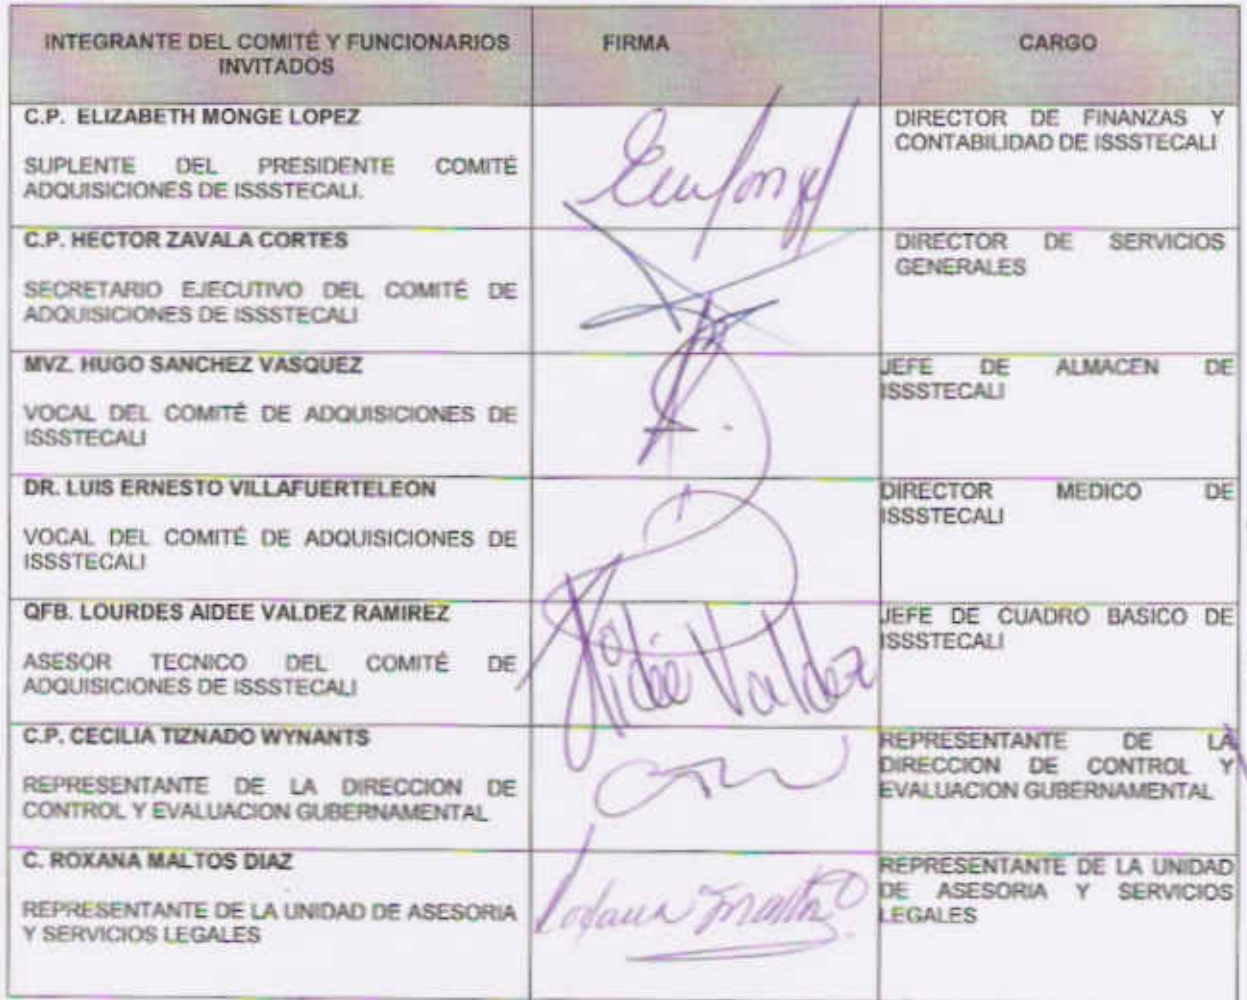 INTEGRANTE DEL COMITÉ Y FUNCIONARIOS
INVITADOS
FIRMA
CARGO
C.P. ELIZABETH MONGE LOPEZ
SUPLENTE DEL PRESIDENTE COMITÉ
ADQUISICIONES DE ISSSTECALI.
DIRECTOR DE FINANZAS Y
CONTABILIDAD DE ISSSTECALI
C.P. HECTOR ZAVALA CORTES
SECRETARIO EJECUTIVO DEL COMITÉ DE
ADQUISICIONES DE ISSSTECALI
DIRECTOR DE SERVICIOS
GENERALES
MVZ. HUGO SANCHEZ VASQUEZ
VOCAL DEL COMITÉ DE ADQUISICIONES DE
ISSSTECALI
JEFE DE ALMACEN DE
ISSSTECALI
DR. LUIS ERNESTO VILLAFUERTELEON
VOCAL DEL COMITÉ DE ADQUISICIONES DE
ISSSTECALI
DIRECTOR MEDICO DE
ISSSTECALI
QFB. LOURDES AIDEE VALDEZ RAMIREZ
ASESOR TECNICO DEL COMITÉ DE
ADQUISICIONES DE ISSSTECALI
Aidée Valdez
JEFE DE CUADRO BASICO DE
ISSSTECALI
C.P. CECILIA TIZNADO WYNANTS
REPRESENTANTE DE LA DIRECCION DE
CONTROL Y EVALUACION GUBERNAMENTAL
REPRESENTANTE DE LA
DIRECCION DE CONTROL Y
EVALUACION GUBERNAMENTAL
C. ROXANA MALTOS DIAZ
REPRESENTANTE DE LA UNIDAD DE ASESORIA
Y SERVICIOS LEGALES
REPRESENTANTE DE LA UNIDAD
DE ASESORIA Y SERVICIOS
LEGALES